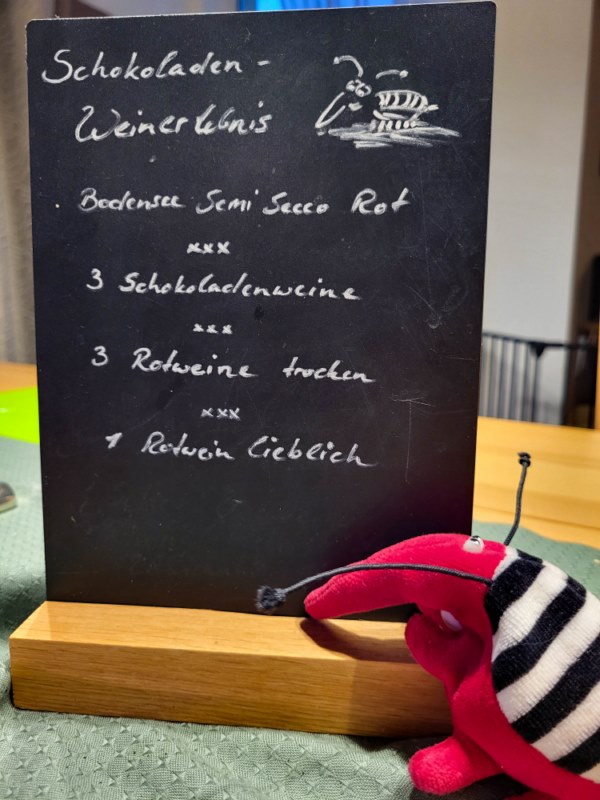 Schokoladen-
Weinerlebnis
Bodensee Semi Secco Rot
xxx
3 Schokoladenweine
xxx
3 Rotweine trocken
xxx
1 Rotwein lieblich